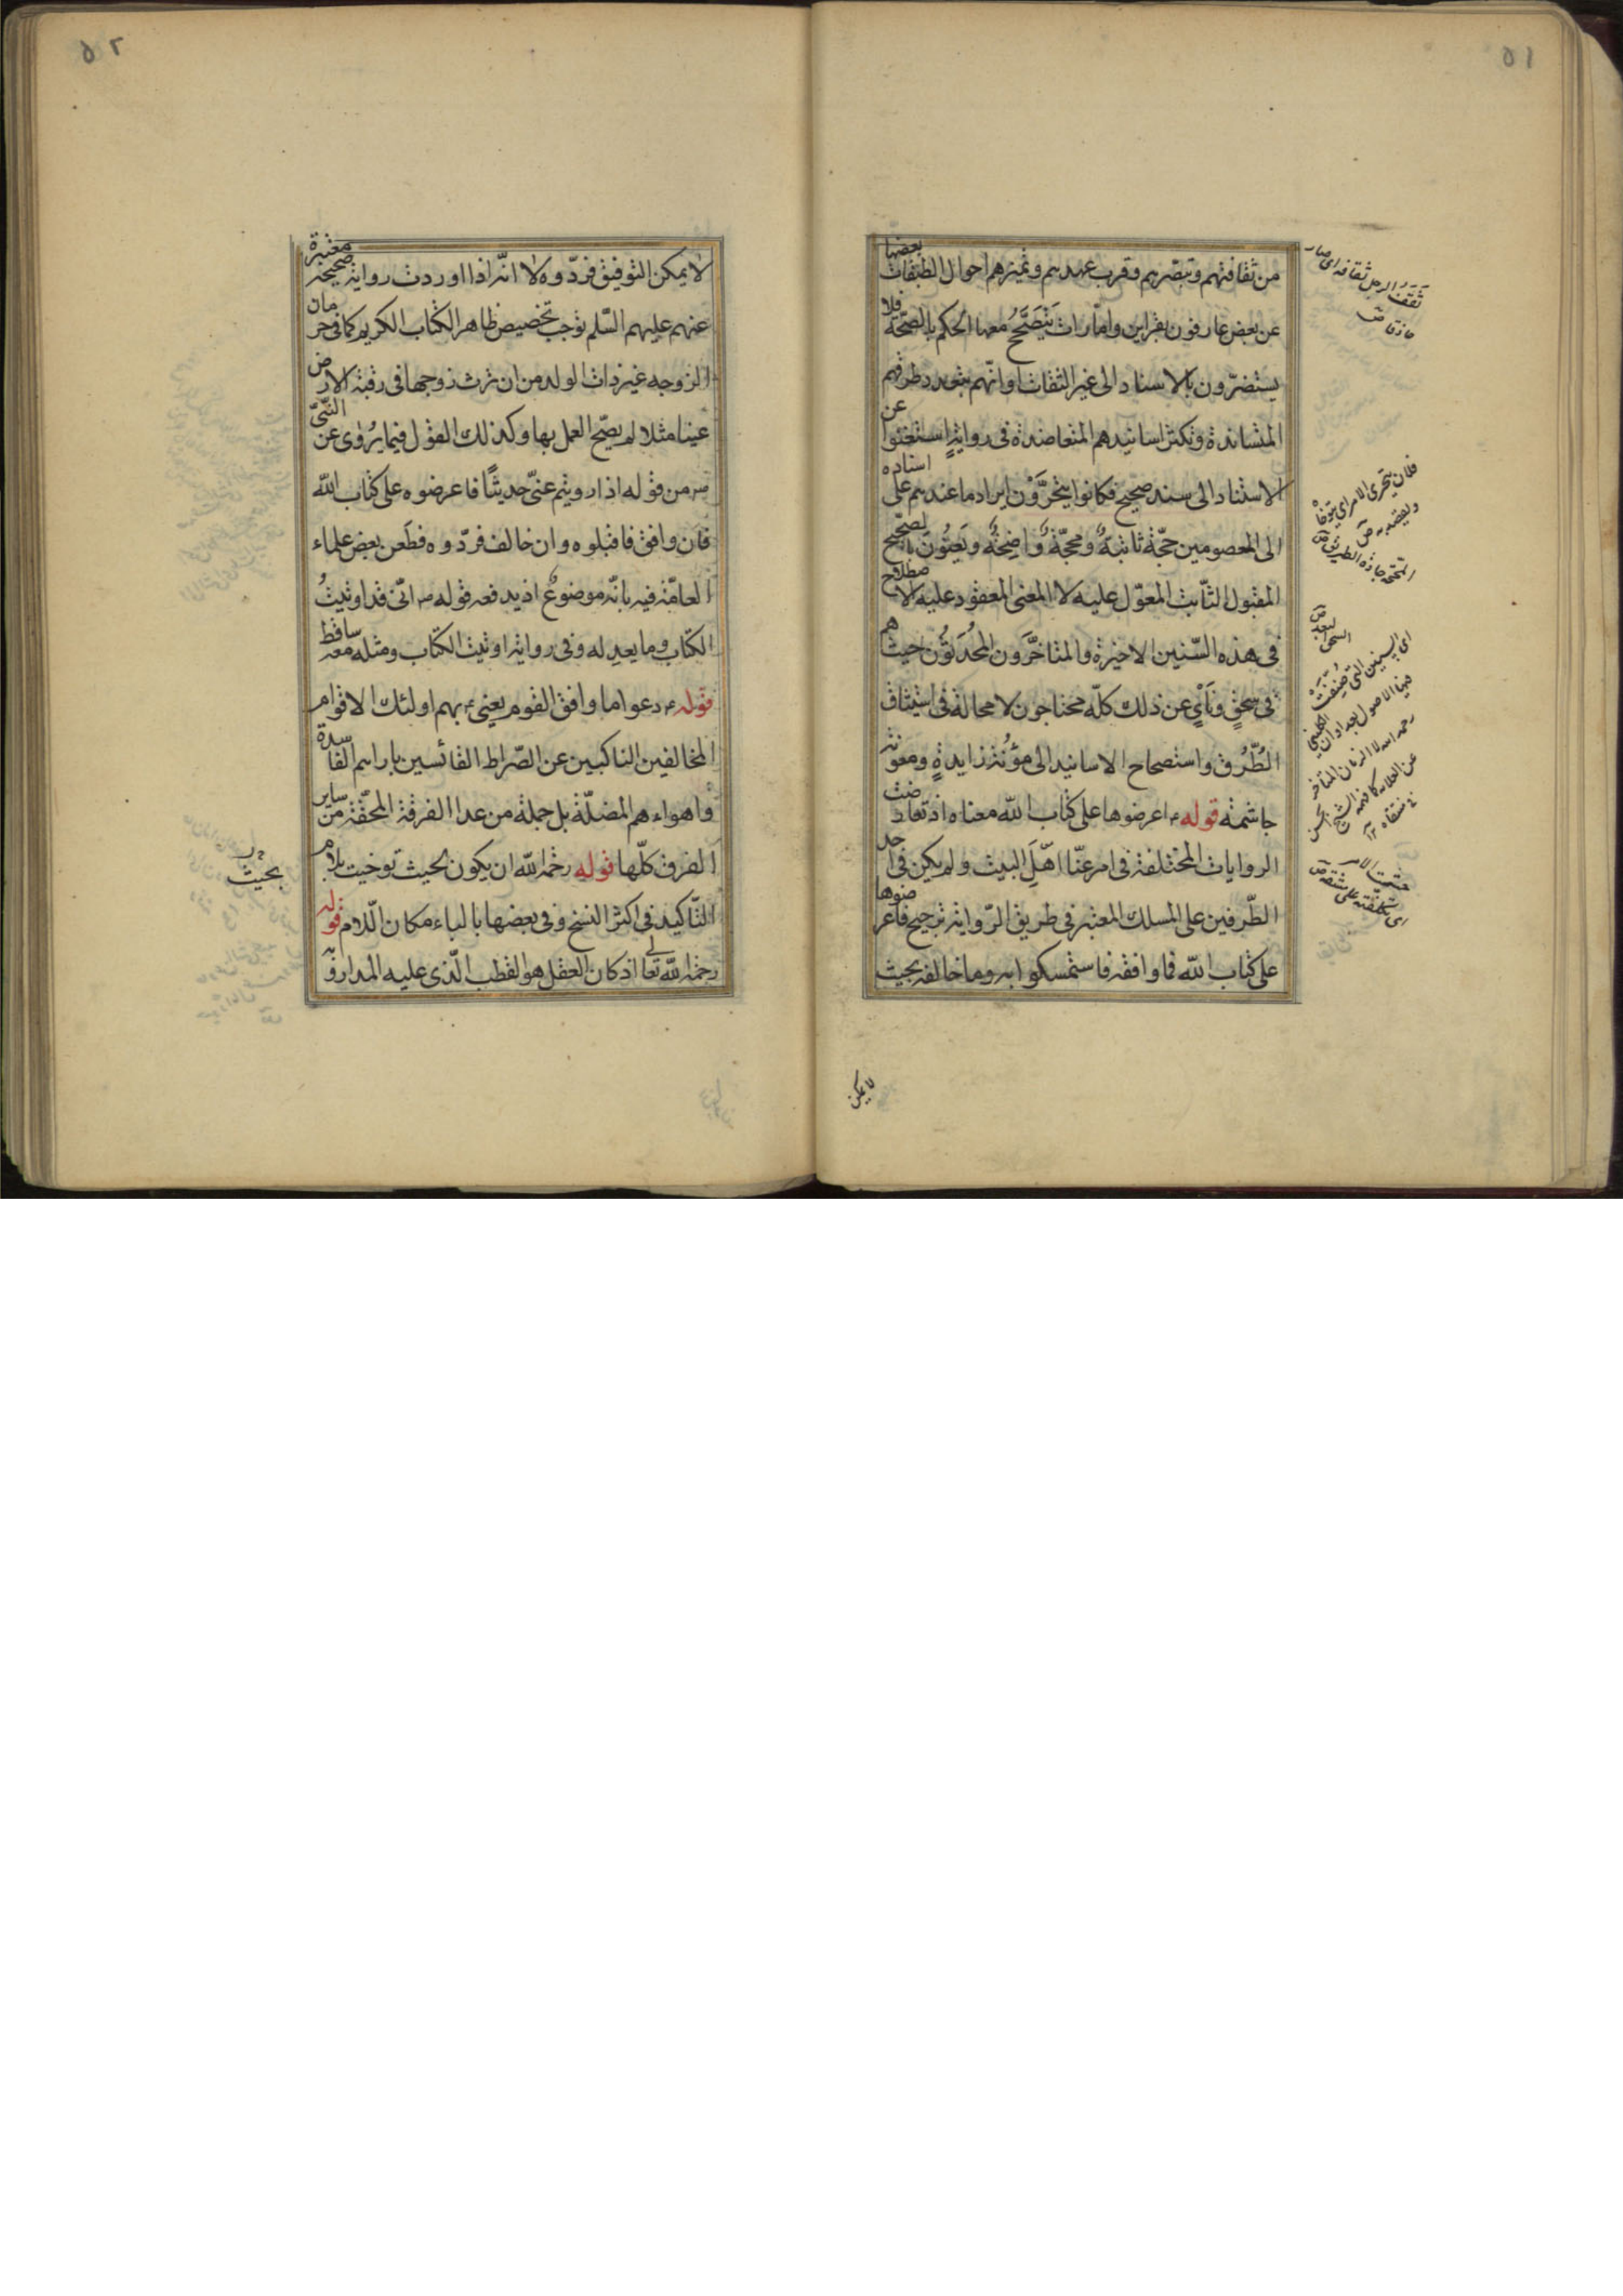 ٥١
من ثقافتهم وتبصّرهم وقرب عهدهم وتميزهم احوال الطبقات بعضها
عن بعض عارفون بقراين وامارات يتصحّح معها الحكم بالصحّة فلا
يستضرّون بالاسناد الى غير الثقات وانّهم بتعدد طرقهم
المتساندة وتكثر اسانيدهم المتعاضدة فى رواية استغنوا عن
الاستناد الى سند صحيح فكانوا يتحرَّوْن ايراد ما عندهم على اسناده
الى المعصومين حجّة ثابتة ومحجّة واضحة ويعنُون بالصحيح
المقبول الثابت المعوّل عليه لا المعنى المعقود عليه الاصطلاح
فى هذه السّنين الاخيرة والمتاخّرون المحدثون حيث هم
فى سحقٍ ونَأْيٍ عن ذلك كلّه محتاجون لا محالة فى استيثاق
الطُّرُق واستصحاح الاسانيد الى مؤنة زايدة ومعونة
جاشمة قوله ع اعرضوها على كتاب اللّه معناه اذ تعارضت
الروايات المختلفة فى امر عنّا اهل البيت ولم يكن فى احد
الطّرفين على المسلك المعتبر فى طريق الرّواية ترجيح فاعرضوها
على كتاب اللّه فما وافقه فاستمسكوا به وما خالفه بحيث
لا يمكن
ثَقَفَ الرجل ثقافة اى صار
حاذقا
فلان يتحرى الامر اى يتوخاه
ويقصده ص
المحجة جادة الطريق ص
السحق البعد ص
اى السنين التى صنفت
فيها الاصول بعد اوان الكلينى
رحمه الله الا الزمان المتاخر
جشمت الامر
اى تكلفته على مشقة ص
٥٢
لا يمكن التوفيق فردّوه لا انّه اذا اوردت رواية صحيحة معتبرة
عنهم عليهم السّلم توجب تخصيص ظاهر الكتاب الكريم كما فى حرمان
الزوجه غير ذات الولد من ان ترث زوجها فى رقبة الارض
عينا مثلا لم يصحّ العمل بها وكذلك القول فيما يُرْوى عن النّبىّ
ص من قوله اذا رويتم عنّى حديثًا فاعرضوه على كتاب اللّه
فان وافق فاقبلوه وان خالف فردّوه فطعن بعض علماء
العامّة فيه بانّه موضوعٌ اذ يدفعه قوله ص انّى قد اوتيتُ
الكتاب وما يعدله وفى رواية اوتيت الكتاب ومثله معه ساقط
قوله ع دعوا ما وافق القوم يعنى ع بهم اولئك الاقوام
المخالفين الناكبين عن الصّراط القائسين بارائهم الفاسدة
واهواءهم المضلّة بل جملة من عدا الفرقة المحقّة من ساير
الفرق كلّها قوله رحمه اللّه ان يكون بحيث توخيت بلام
التّاكيد فى اكثر النسخ وفى بعضها بالباء مكان اللّام قوله
رحمه اللّه تعالى اذ كان العقل هو القطب الّذى عليه المدار وبه
بحيث